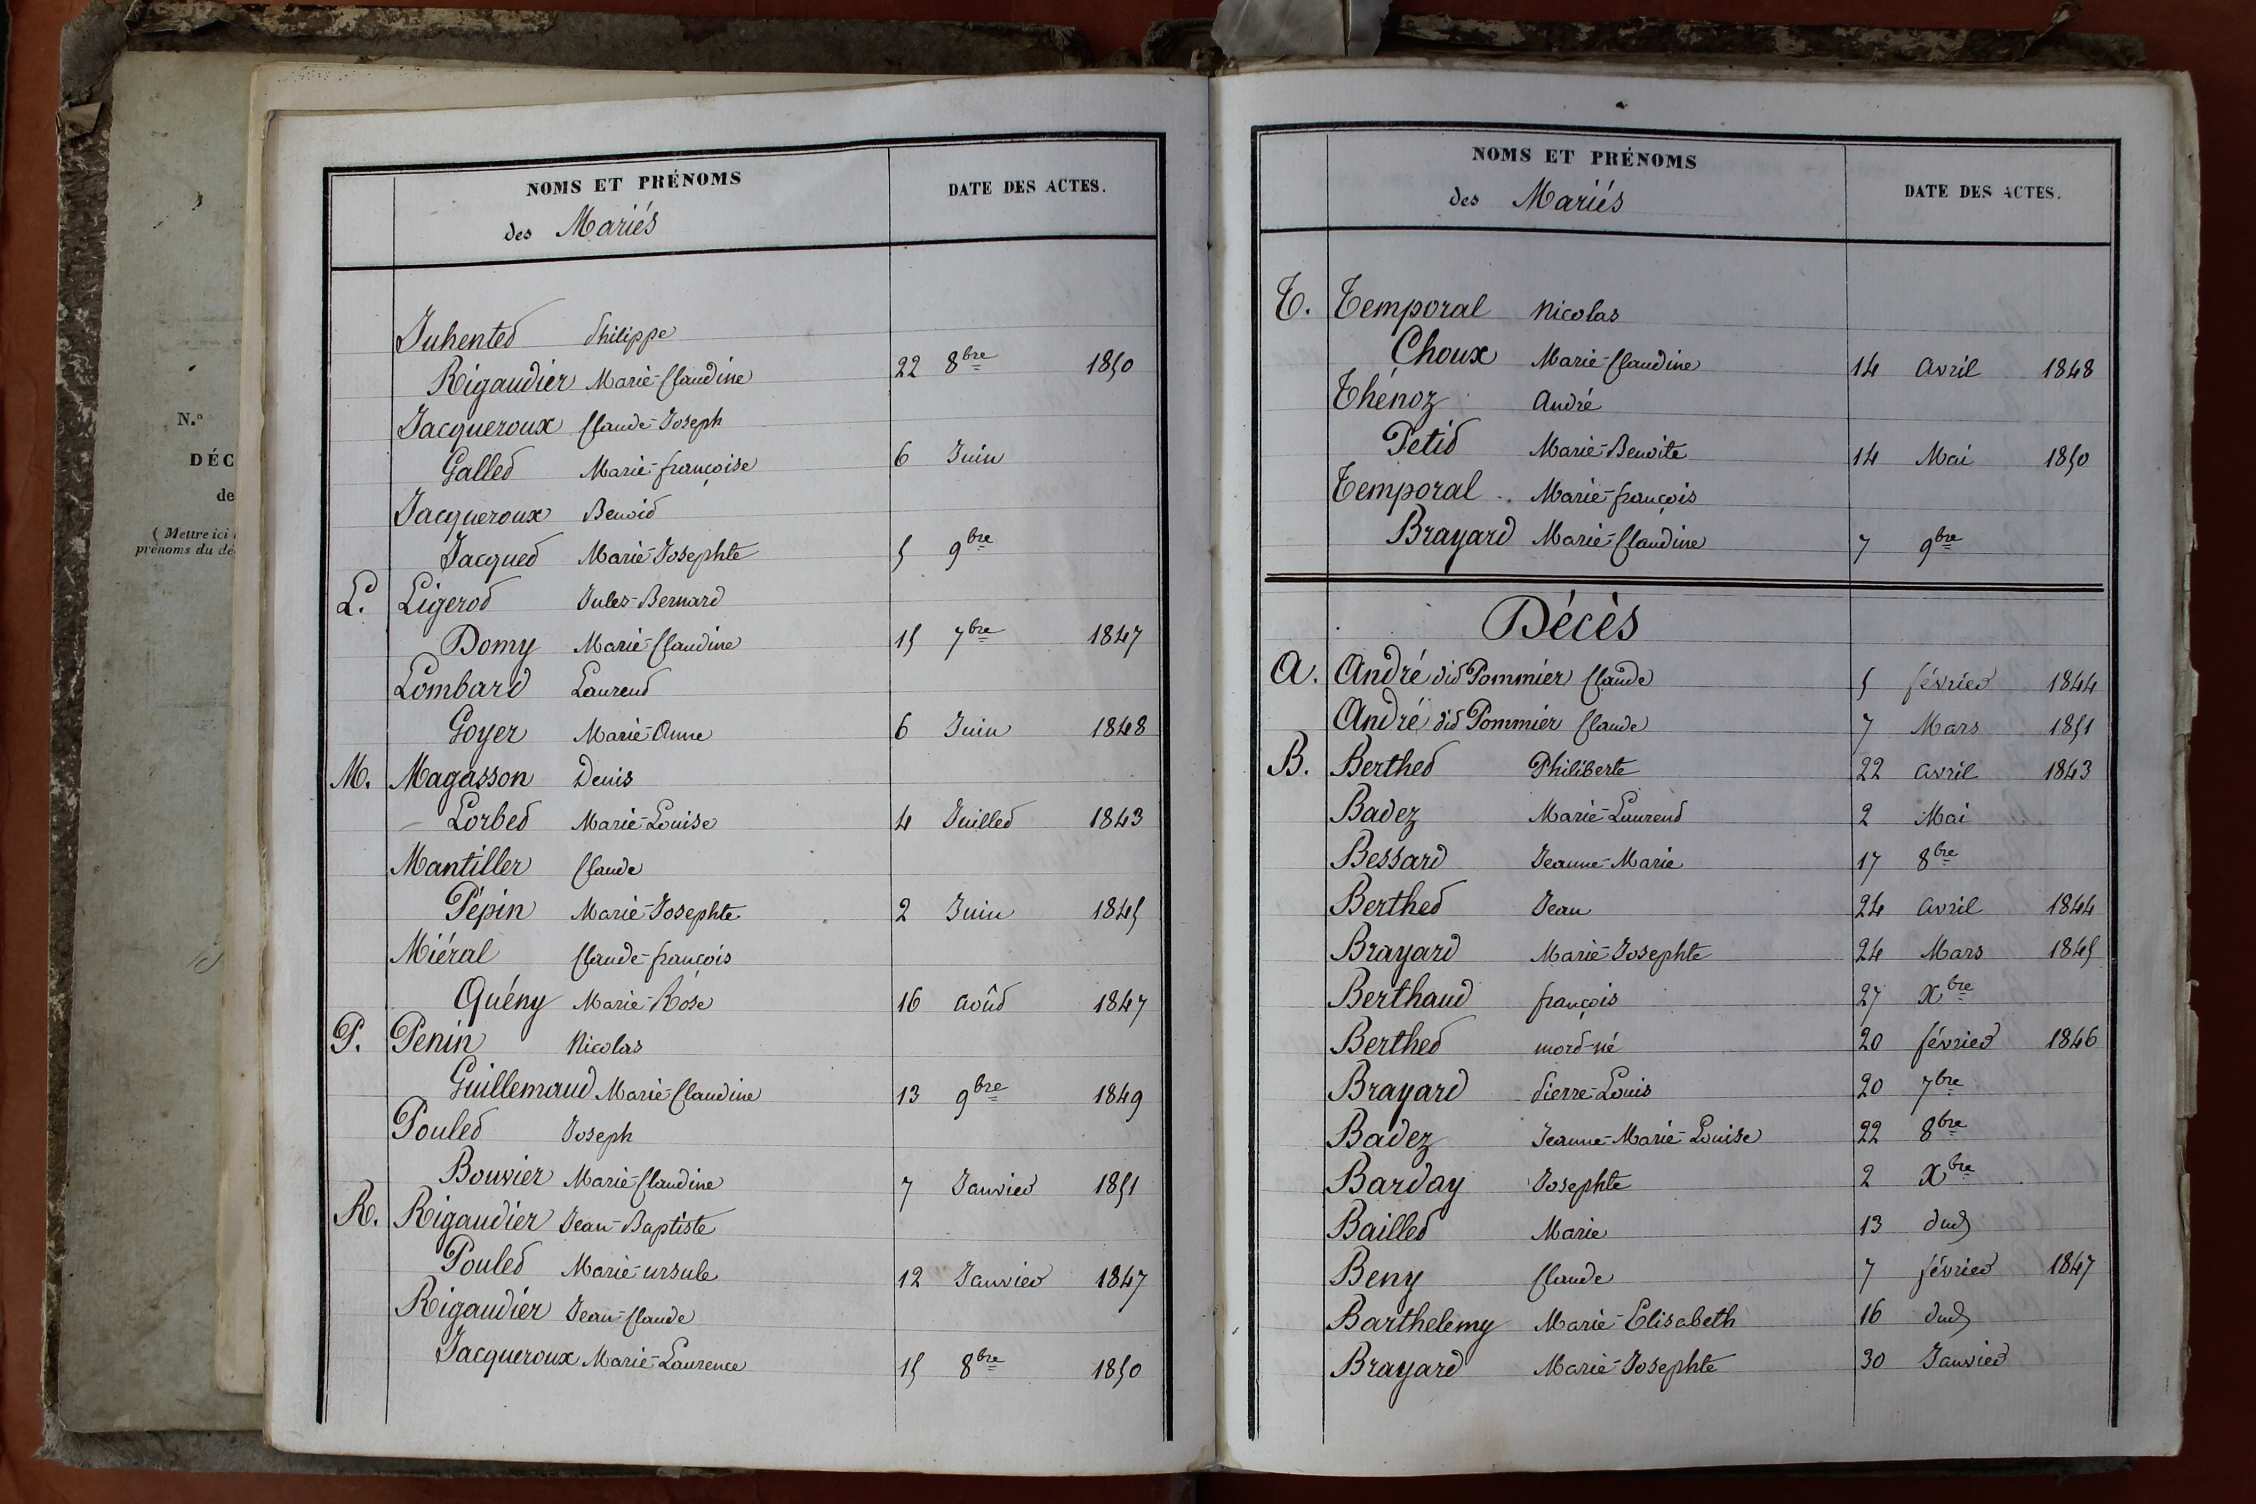 N.o
DÉC
de
( Mettre ici
prénoms du dé
NOMS ET PRÉNOMS
des Mariés
DATE DES ACTES.
Juhentet Philippe
Rigaudier Marie-Claudine 22 8bre 1850
Jacqueroux Claude-Joseph
Gallet Marie-françoise 6 Juin
Jacqueroux Benoit
Jacquet Marie-Josephte 5 9bre
L. Ligerot Jules-Bernard
Domy Marie-Claudine 15 7bre 1847
Lombard Laurent
Goyer Marie-Anne 6 Juin 1848
M. Magasson Denis
Lorbet Marie-Louise 4 Juillet 1843
Mantiller Claude
Pépin Marie-Josephte 2 Juin 1845
Miéral Claude-françois
Quény Marie-Rose 16 août 1847
P. Penin Nicolas
Guillemaud Marie-Claudine 13 9bre 1849
Poulet Joseph
Bouvier Marie-Claudine 7 Janvier 1851
R. Rigaudier Jean-Baptiste
Poulet Marie-ursule 12 Janvier 1847
Rigaudier Jean-Claude
Jacqueroux Marie-Laurence 15 8bre 1850
NOMS ET PRÉNOMS
des Mariés
DATE DES ACTES.
T. Temporal Nicolas
Choux Marie-Claudine 14 avril 1848
Thénoz André
Petit Marie-Benoite 14 Mai 1850
Temporal Marie-françois
Brayard Marie-Claudine 7 9bre
Décès
A. André dit Pommier Claude 5 février 1844
André dit Pommier Claude 7 Mars 1851
B. Berthet Philiberte 22 avril 1843
Badez Marie-Laurent 2 Mai
Bessard Jeanne-Marie 17 8bre
Berthet Jean 24 avril 1844
Brayard Marie-Josephte 24 Mars 1845
Berthaud françois 27 Xbre
Berthet mort-né 20 février 1846
Brayard Pierre-Louis 20 7bre
Badez Jeanne-Marie-Louise 22 8bre
Barday Josephte 2 Xbre
Baillet Marie 13 dud
Beny Claude 7 février 1847
Barthelemy Marie-Elisabeth 16 dud
Brayard Marie-Josephte 30 Janvier